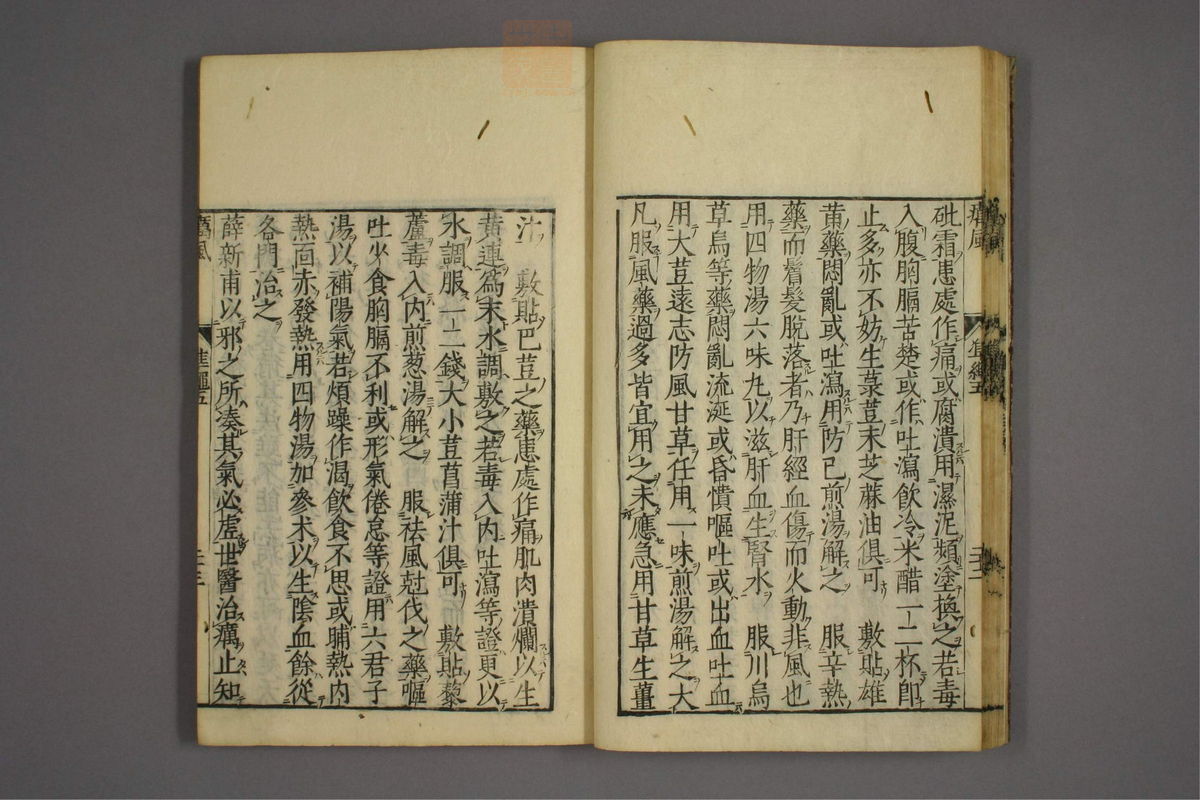 癘風
砒霜患處作痛或腐潰用濕泥頻塗換之若毒
入腹胸膈苦楚或作吐瀉飲冷米醋一二杯即
止多亦不妨生菉荳末芝蔴油俱可 敷貼雄
黄藥悶亂或吐瀉用防已煎湯解之 服辛熱
藥而眉髮脫落者乃肝經血傷而火動非風也
用四物湯六味丸以滋肝血生腎水 服川烏
草烏等藥悶亂流涎或昏憒嘔吐或出血吐血
用大荳遠志防風甘草任用一味煎湯解之大
凡服風藥過多皆宜用之未應急用甘草生薑
汁 敷貼巴荳之藥患處作痛肌肉潰爛以生
黄連爲末水調敷之若毒入内吐瀉等證更以
水調服一二錢大小荳菖蒲汁俱可 敷貼藜
蘆毒入内煎葱湯解之 服祛風尅伐之藥嘔
吐少食胸膈不利或形氣倦怠等證用六君子
湯以補陽氣若煩躁作渴飲食不思或晡熱内
熱面赤發熱用四物湯加參术以生陰血餘從
各門治之
薛新甫以邪之所湊其氣必虛世醫治癘止知
癘風
準繩五
二十三